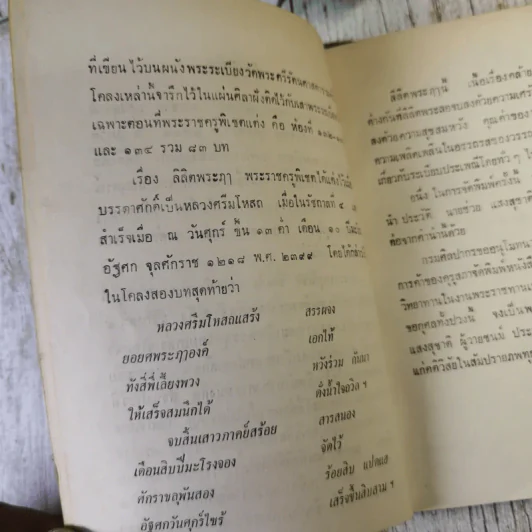 ที่เขียนไว้บนผนังพระระเบียงวัดพระศรีรัตนศาสดา
โคลงเหล่านี้จารึกไว้ในแผ่นศิลาฝั่งติดไว้กับเสาพระระเบียง
เฉพาะตอนที่พระราชครูพิเชตแต่ง คือ ห้องที่
และ ๑๓๔ รวม ๘๓ บท
เรื่อง ลิลิตพระฦๅ พระราชครูพิเชตได้แต่งไว้เมื่อ
บรรดาศักดิ์เป็นหลวงศรีมโหสถ เมื่อในรัชกาลที่ ๔
สำเร็จเมื่อ ณ วันศุกร์ ขึ้น ๑๓ ค่ำ เดือน ๑๐ ปีมะโรง
อัฐศก จุลศักราช ๑๒๑๘ พ.ศ. ๒๓๙๙ โดยได้กล่าวไว้
ในโคลงสองบทสุดท้ายว่า
หลวงศรีมโหสถแสร้ง สรรผจง
ยอยศพระฦๅองค์ เอกไท้
ทังสี่พี่เลี้ยงพวง หวังร่วม กันมา
ให้เสร็จสมนึกได้ ดั่งน้ำใจถวิล ฯ
จบสิ้นเสาวภาคย์สร้อย สารสนอง
เดือนสิบปีมะโรงจอง จัดไว้
ศักราชฉพันสอง ร้อยสิบ แปดแล
อัฐศกวันศุกร์ไซร้ เสร็จขึ้นสิบสาม ฯ
ลิลิตพระฦๅนี้ เนื้อเรื่องคล้าย
ต่างกันที่ลิลิตพระลอจบลงด้วยความเศร้า
ลงด้วยความสุขสมหวัง คุณค่าของ
ความเพลิดเพลินในอรรถรสของวรรณ
เกี่ยวกับระเบียบประเพณีโดยทั่ว ๆ ไป
อนึ่ง ในการจัดพิมพ์ครั้งนี้
นำ ประวัติ นายช่วย แสงสุชาติ
ต่อจากคำนำด้วย
กรมศิลปากรขออนุโมทนา
การค้าของคุรุสภาจัดพิมพ์หนังสือ
วิทยาทานในงานพระราชทานเพลิง
ขอกุศลทั้งปวงนี้ จงเป็นพลว
แสงสุชาติ ผู้วายชนม์ ประ
แก่คติวิสัยในสัมปรายภพทุก